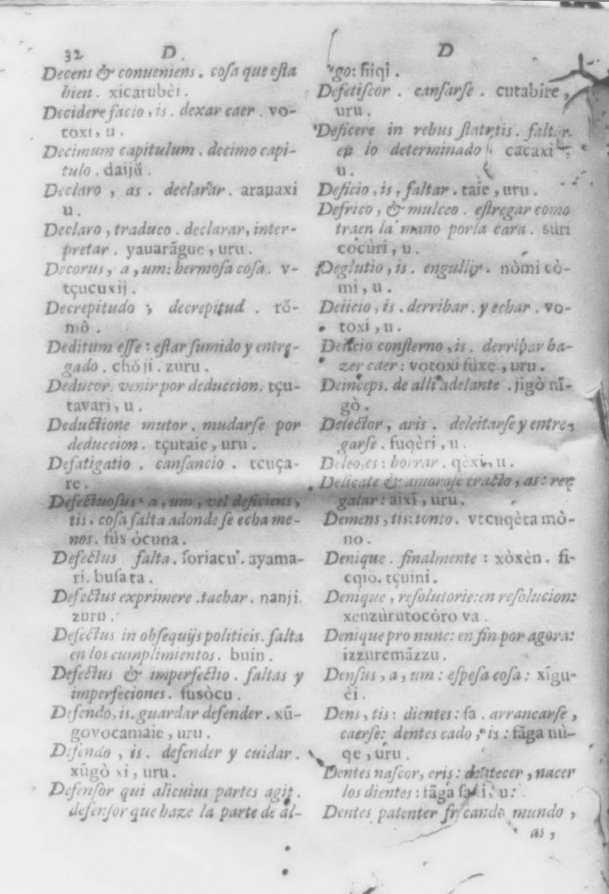 32 D.
Decens & conueniens. cosa que esta
bien. xicarubèi.
Decidere facio, is. dexar caer. vo-
toxi, u.
Decimum capitulum. decimo capi-
tulo. daijǔ.
Declaro, as. declarar. arauaxi
u.
Declaro, traduco. declarar, inter-
pretar. yauarãgue, uru.
Decorus, a, um: hermosa cosa. v-
tçucuxij.
Decrepitudo, decrepitud. rǒ-
mò.
Deditum esse: estar sumido y entre-
gado. chóji. zuru.
Deducor. venir por deduccion. tçu-
tavari, u.
Deductione mutor. mudarse por
deduccion. tçutaie, uru.
Defatigatio. cansancio. tcuça-
re.
Defectuosus a, um, vel deficiens,
tis. cosa falta adonde se echa me-
nos. fus òcuna.
Defectus falta. soriacu. ayama-
ri. busata.
Defectus exprimere. tachar. nanji.
zuru.
Defectus in obsequijs politicis. falta
en los cumplimientos. buin.
Defectus & imperfectio. faltas y
imperfeciones. fusòcu.
Defendo, is. guardar defender. xǔ-
govocamaie, uru.
Difendo, is. defender y cuidar.
xǔgò xi, uru.
Defensor qui alicuius partes agit.
defensor que haze la parte de al-
D
go: fiiqi.
Defetiscor. cansarse. cutabire,
uru.
Deficere in rebus statutis. faltar
en lo determinado cacaxi
u.
Deficio, is, faltar. taie, uru.
Defrico, & mulceo. estregar como
traen la mano por la cara. suri
cocuri, u.
Deglutio, is. engullir. nòmi cò-
mi, u.
Deiicio, is. derribar. y echar. vo-
toxi, u.
Deiicio consterno, is. derribar ha-
zer caer: votoxi fuxe, uru.
Deinceps. de alli adelante. jigò nĩ-
gò.
Delector, aris. deleitarse y entre-
garse. fuqèri, u.
Deleo, es: borrar. qèxi, u.
Delicate & amorose tracto, as: re-
galar: aixi, uru.
Demens, tis: tonto. vtcuqèta mò-
no.
Denique. finalmente: xòxèn. fi-
cqio. tçuini.
Denique, resolutorie: en resolucion:
xenzùrutocòro va.
Denique pro nunc: en fin por agora:
izzuremãzzu.
Densus, a, um: espesa cosa: xĩgu-
èi.
Dens, tis: dientes: fa. arrancarse,
caerse: dentes cado, is: fãga nù-
qe, uru.
Dentes nascor, eris: dentecer, nacer
los dientes: fãga u:
Dentes patenter fricando mundo,
as,